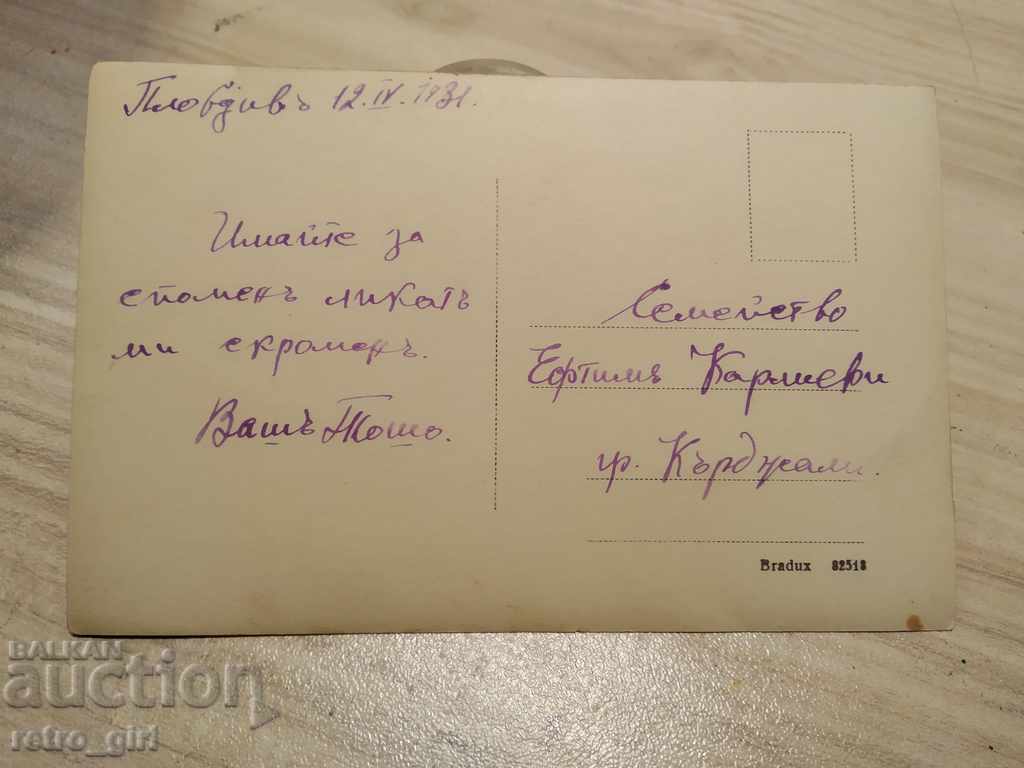 Пловдивъ 12.IV.1931.
Имайте за
споменъ ликатъ
ми скроменъ.
Вашъ Тошо.
Семейство
Ефтимъ Кармеви
гр. Кърджали.
Bradux 82518
BALKAN
auction
retro_girl